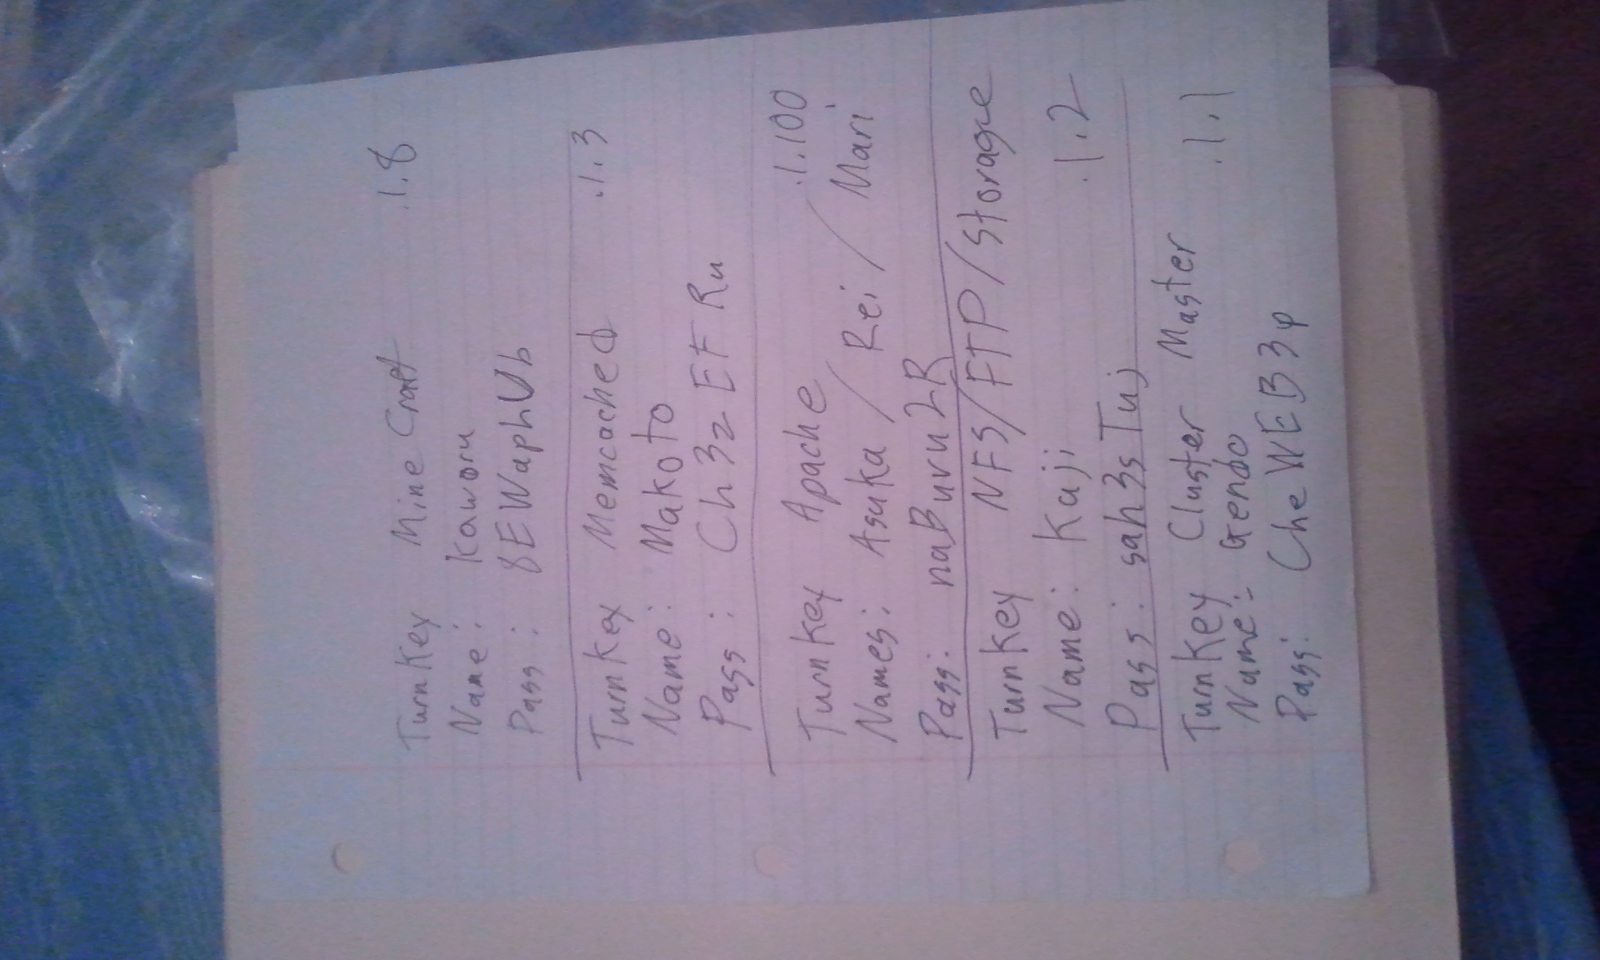 TurnKey MineCraft .1.8
Name: Kaworu
Pass: 8EWaphUb
TurnKey Memcached .1.3
Name: Makoto
Pass: Ch3zEFRu
TurnKey Apache .1.100
Names: Asuka / Rei / Mari
Pass: naBuru2R
TurnKey NFS/FTP/Storage
Name: Kaji .1.2
Pass: sah3sTuj
TurnKey Cluster Master
Name: Gendo .1.1
Pass: CheWEB3p